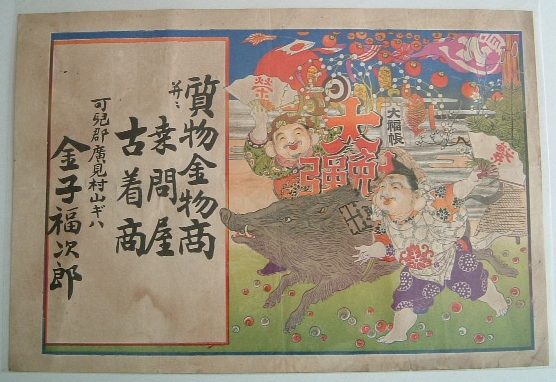 大福帳
大勉強
榮
質物金物商
并ニ
桒問屋
古着商
可兒郡廣見村山ギハ
金子福次郎